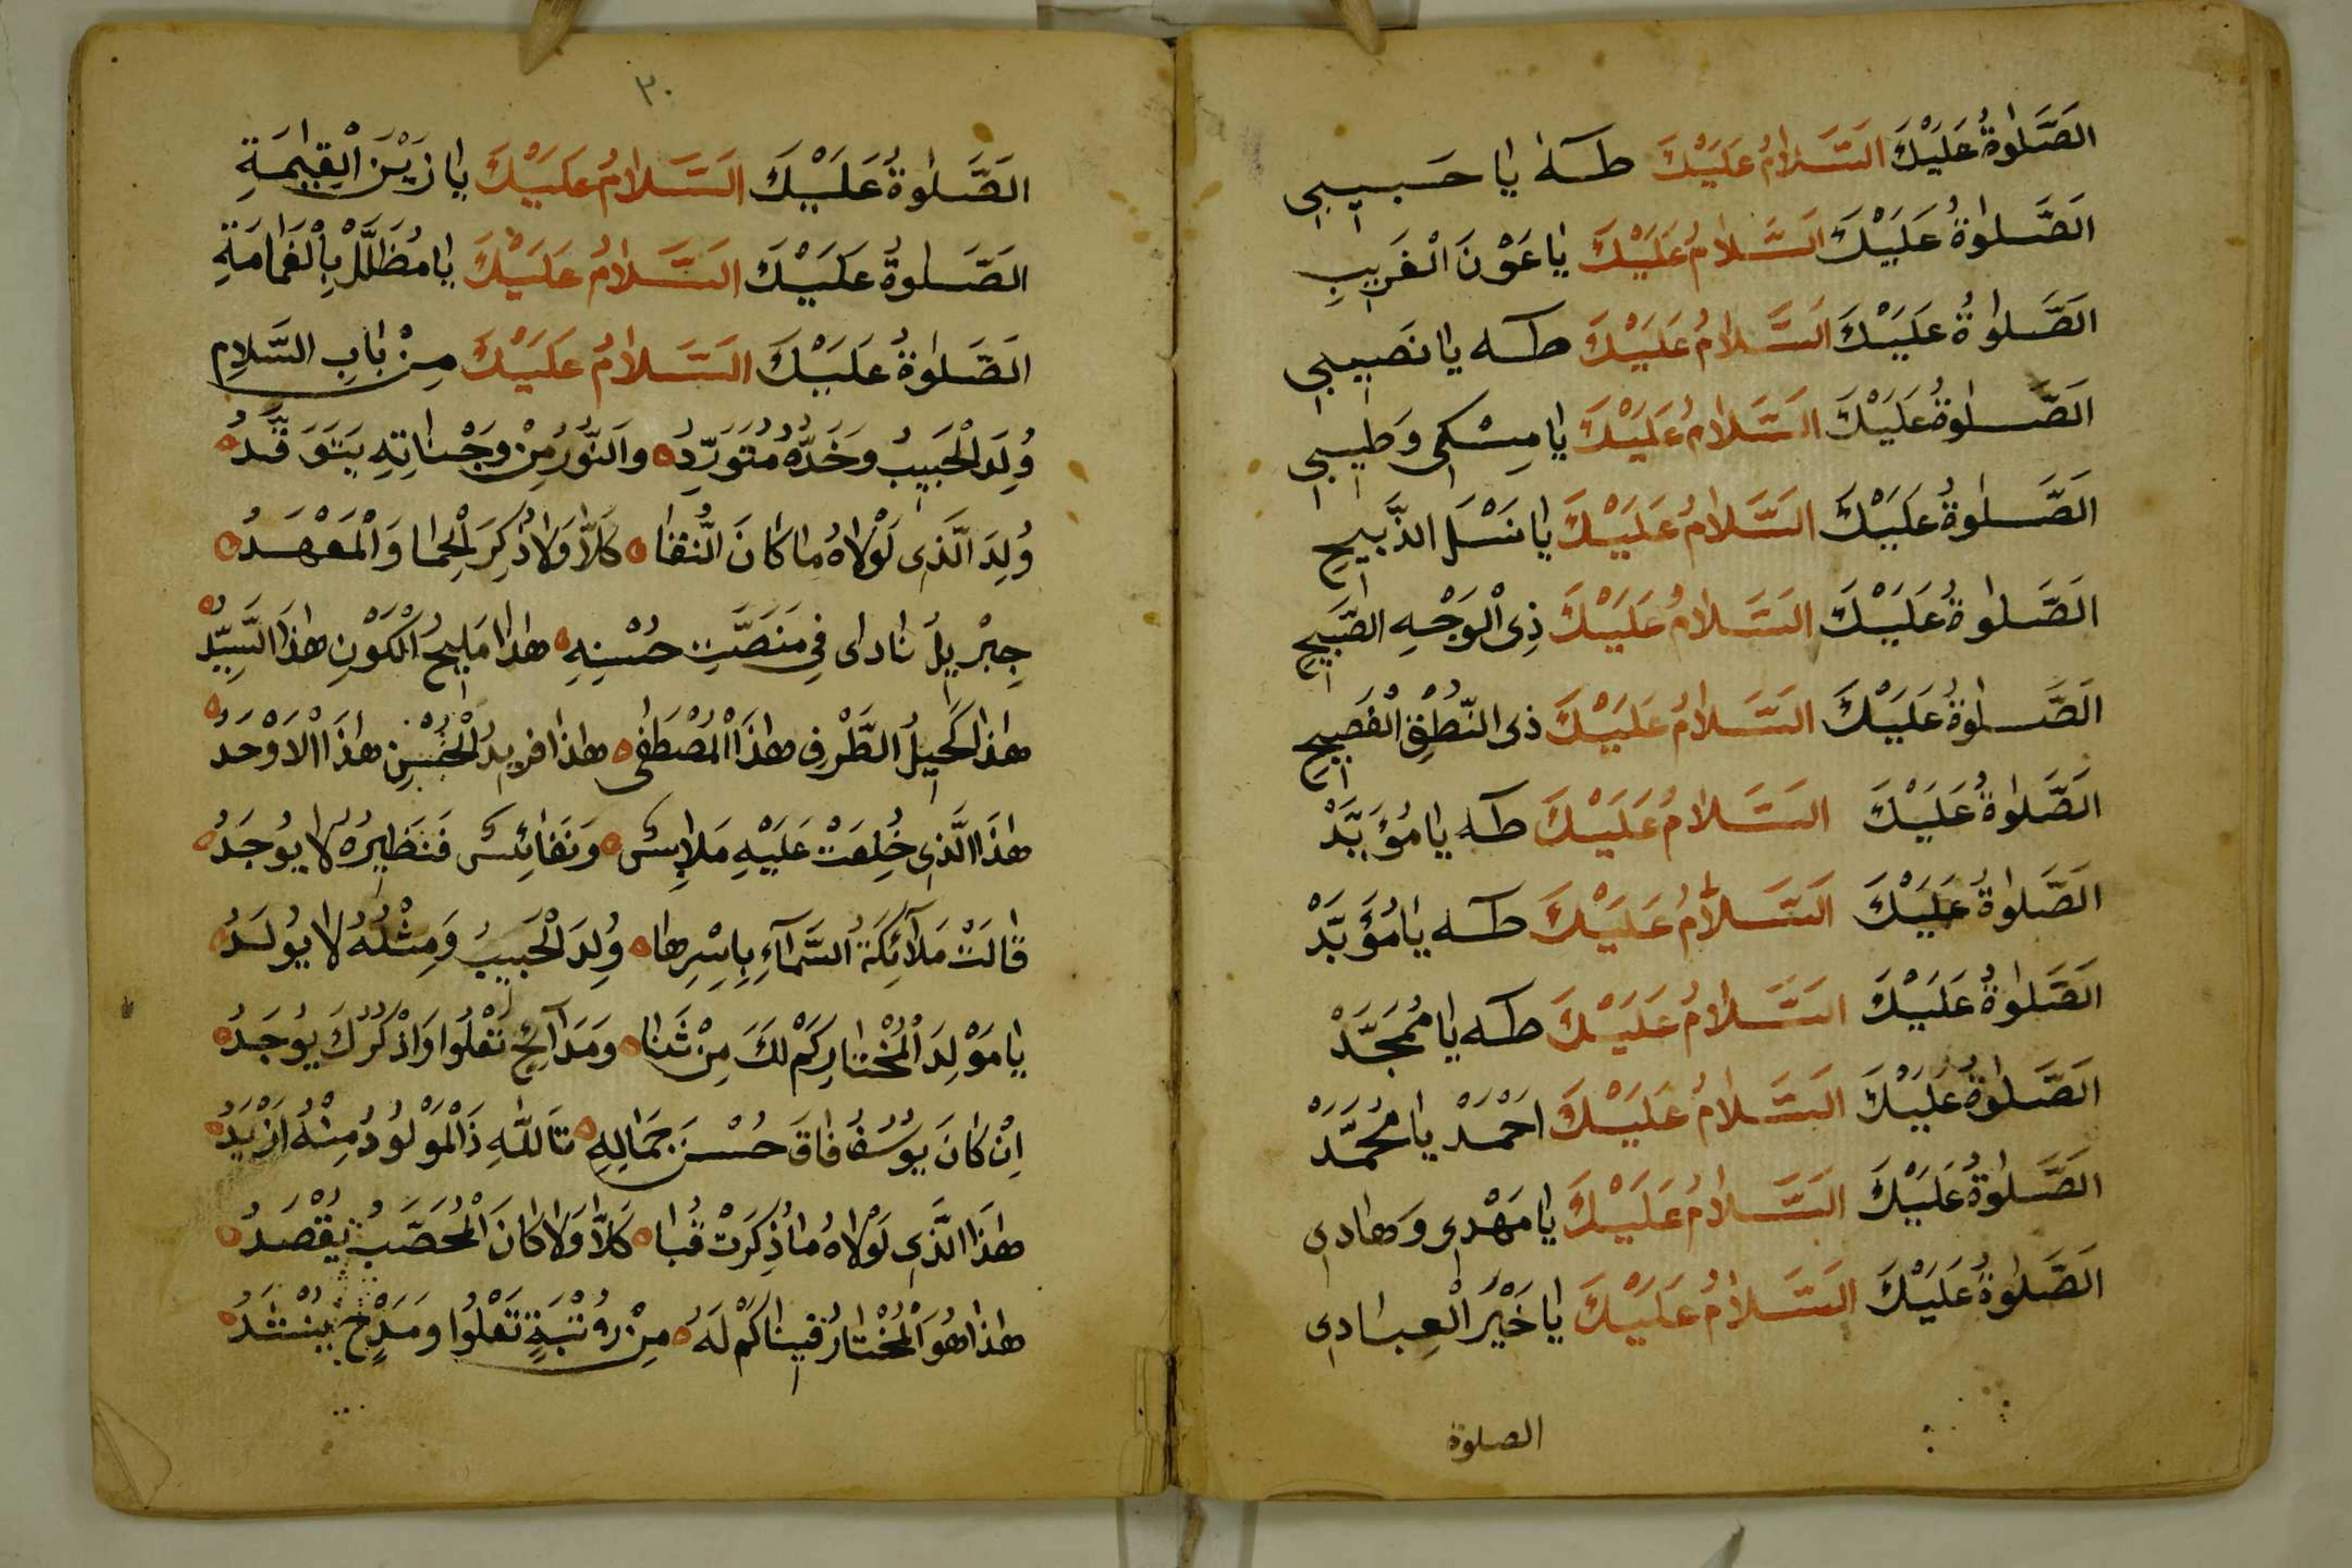 الصَّلٰوةُ عَلَيْكَ السَّلَامُ عَلَيْكَ طٰهٰ يَا حَبِيبِي
الصَّلٰوةُ عَلَيْكَ السَّلَامُ عَلَيْكَ يَا عَوْنَ الْغَرِيبِ
الصَّلٰوةُ عَلَيْكَ السَّلَامُ عَلَيْكَ طٰه يَا نَصِيبِي
الصَّلٰوةُ عَلَيْكَ السَّلَامُ عَلَيْكَ يَا مِسْكِي وَطِيبِي
الصَّلٰوةُ عَلَيْكَ السَّلَامُ عَلَيْكَ يَا نَسْلَ الذَّبِيحِ
الصَّلٰوةُ عَلَيْكَ السَّلَامُ عَلَيْكَ ذِى الْوَجْهِ الصَّبِيحِ
الصَّلٰوةُ عَلَيْكَ السَّلَامُ عَلَيْكَ ذِى النُّطْقِ الْفَصِيحِ
الصَّلٰوةُ عَلَيْكَ السَّلَامُ عَلَيْكَ طٰه يَا مُؤَيَّدْ
الصَّلٰوةُ عَلَيْكَ السَّلَامُ عَلَيْكَ طٰه يَا مُؤَيَّدْ
الصَّلٰوةُ عَلَيْكَ السَّلَامُ عَلَيْكَ طٰه يَا مُمَجَّدْ
الصَّلٰوةُ عَلَيْكَ السَّلَامُ عَلَيْكَ اَحْمَدْ يَا مُحَمَّدْ
الصَّلٰوةُ عَلَيْكَ السَّلَامُ عَلَيْكَ يَا مَهْدِي وَهَادِي
الصَّلٰوةُ عَلَيْكَ السَّلَامُ عَلَيْكَ يَا خَيْرَ الْعِبَادِي
الصلوة
٣٠
الصَّلٰوةُ عَلَيْكَ السَّلَامُ عَلَيْكَ يَا زَيْنَ الْقِيٰمَةِ
الصَّلٰوةُ عَلَيْكَ السَّلَامُ عَلَيْكَ يَا مُظَلَّلْ بِالْغَمَامَةِ
الصَّلٰوةُ عَلَيْكَ السَّلَامُ عَلَيْكَ مِنْ بَابِ السَّلَامِ
وُلِدَ الْحَبِيبُ وَخَدُّهُ مُتَوَرِّدُ وَالنُّورُ مِنْ وَجْنَاتِهِ يَتَوَقَّدُ
وُلِدَ الَّذِى لَوْلَاهُ مَا كَانَ النُّقَا كَلَّا وَلَا ذُكِرَ الْحِمَا وَالْمَعْهَدُ
جِبْرِيلُ نَادَاى فِي مَنَصَّتِ حُسْنِهِ هٰذَا مَلِيحُ الْكَوْنِ هٰذَا السَّيِّدُ
هٰذَا كَحِيلُ الطَّرْفِ هٰذَا الْمُصْطَفٰى هٰذَا فَرِيدُ الْحُسْنِ هٰذَا الْاَوْحَدُ
هٰذَا الَّذِى خُلِعَتْ عَلَيْهِ مَلَابِسٌ وَنَفَائِسٌ فَنَظِيرُهُ لَا يُوجَدُ
قَالَتْ مَلَآئِكَةُ السَّمَآءِ بِاَسْرِهَا وُلِدَ الْحَبِيبُ وَمِثْلُهُ لَا يُولَدُ
يَا مَوْلِدَ الْمُخْتَارِ كَمْ لَكَ مِنْ ثَنَا وَمَدَآئِحٍ تَعْلُوا وَاذْكُرْكَ يُوجَدُ
اِنْ كَانَ يُوسُفُ فَاقَ حُسْنَ جَمَالِهِ تَاللّٰهِ ذَا الْمَوْلُودُ مِنْهُ اَزْيَدُ
هٰذَا الَّذِى لَوْلَاهُ مَا ذُكِرَتْ قُبَا كَلَّا وَلَا كَانَ الْمُحَصَّبُ يُقْصَدُ
هٰذَا هُوَ الْمُخْتَارُ فِينَا كَمْ لَهُ مِنْ رُتْبَةٍ تَعْلُوا وَمَدْحٍ يُنْشَدُ